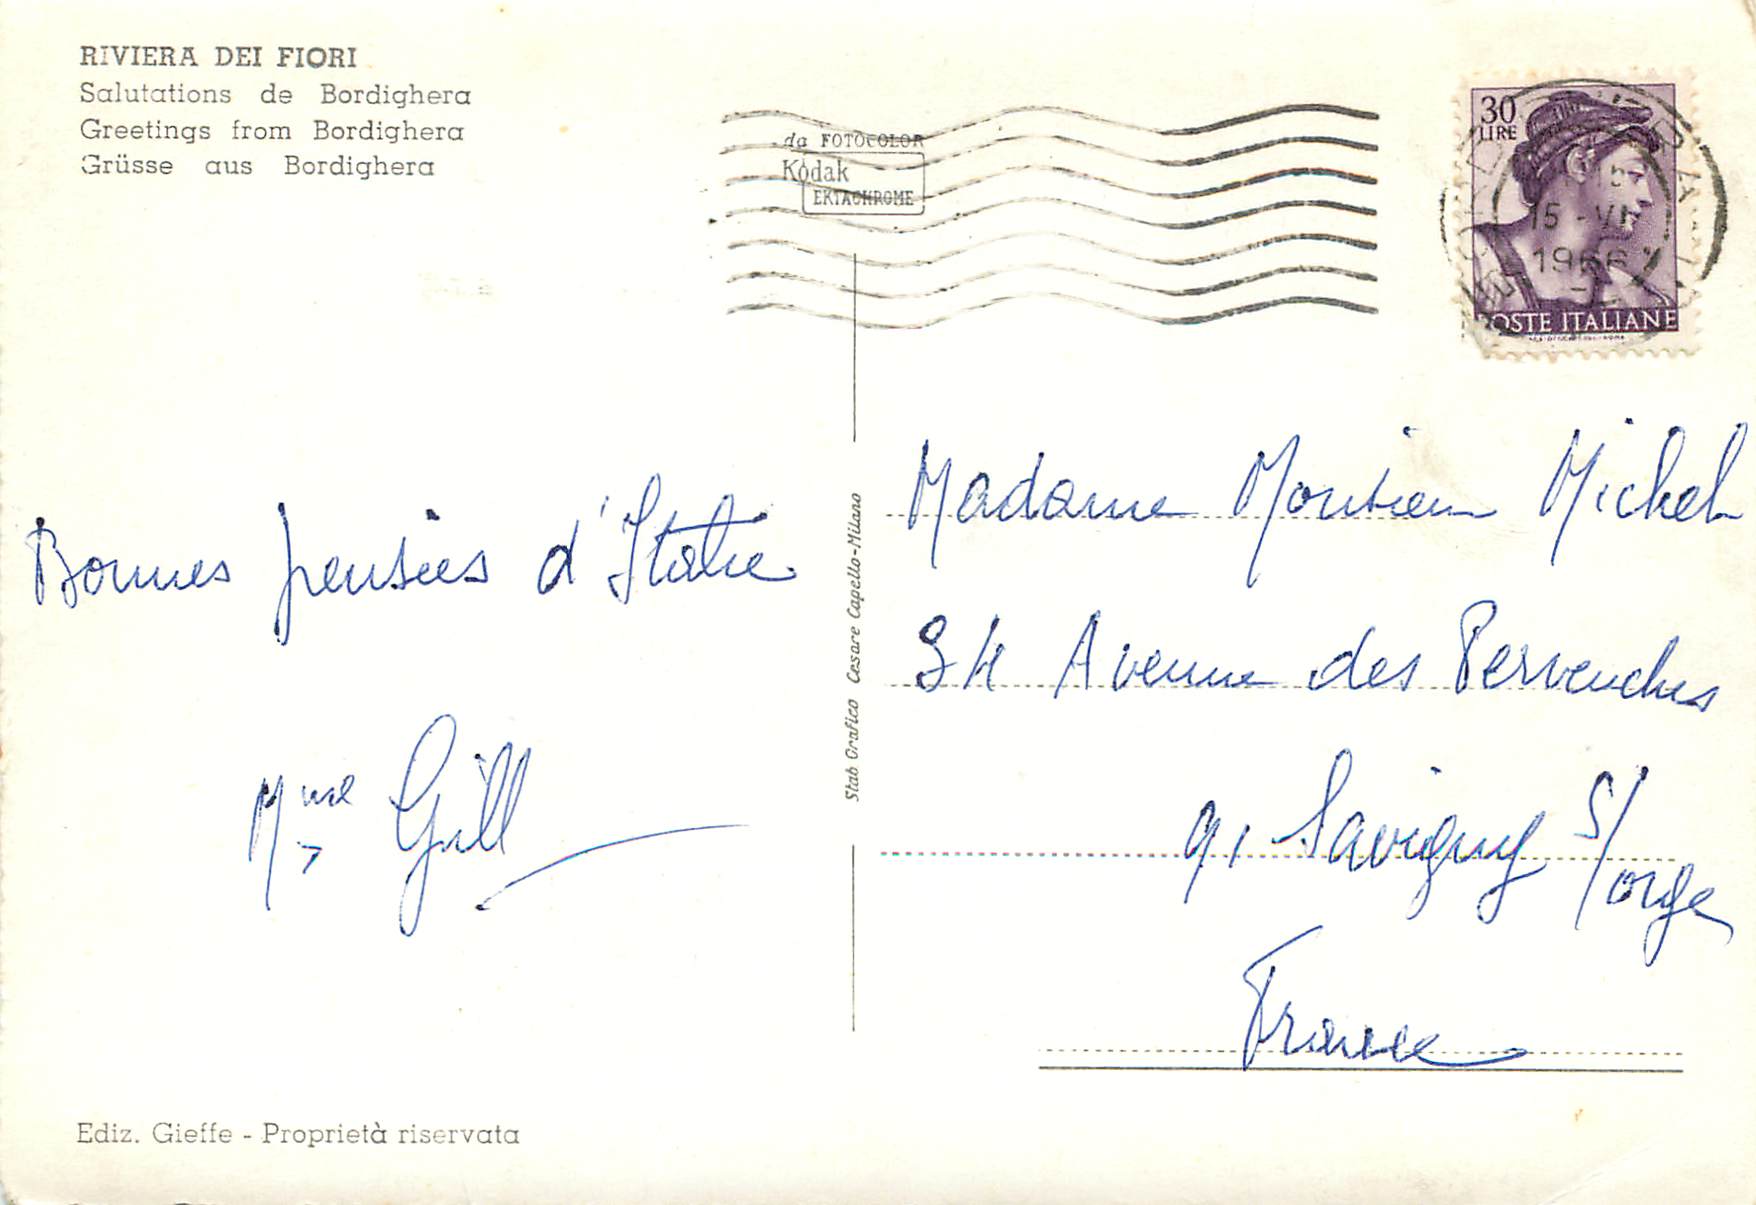 RIVIERA DEI FIORI
Salutations de Bordighera
Greetings from Bordighera
Grüsse aus Bordighera
da FOTOCOLOR
Kodak
EKTACHROME
30
LIRE
15 - VII
1966
POSTE ITALIANE
Bonnes pensées d'Italie
Mme Gill
Stab Grafico Cesare Capello-Milano
Madame Monsieur Michel
34 Avenue des Pervenches
91 Savigny s/orge
France
Ediz. Gieffe - Proprietà riservata